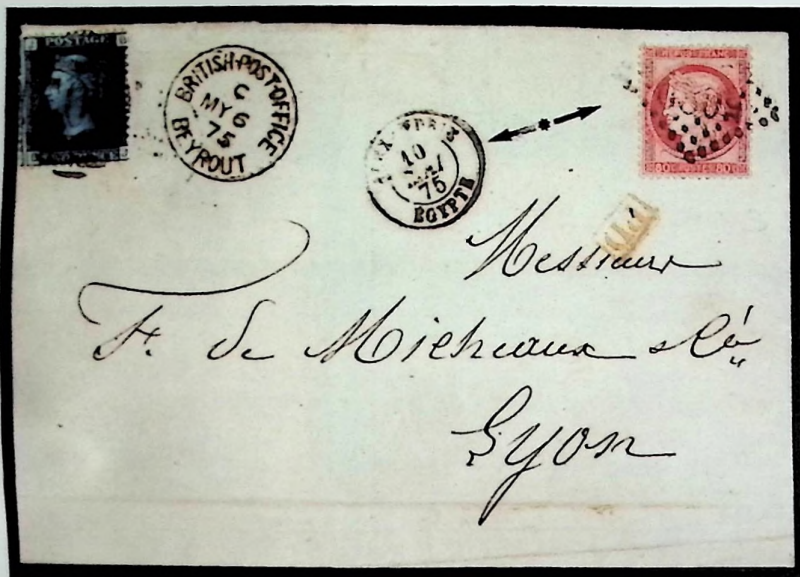 POSTAGE
BRITISH·POST·OFFICE
C
MY 6
75
BEYROUT
ALEXANDRIE
10
MAI
75
ÉGYPTE
REPUB. FRANC.
80 POSTES 80
P.D.
Messieurs
F. de Micheaux & Cie
Lyon